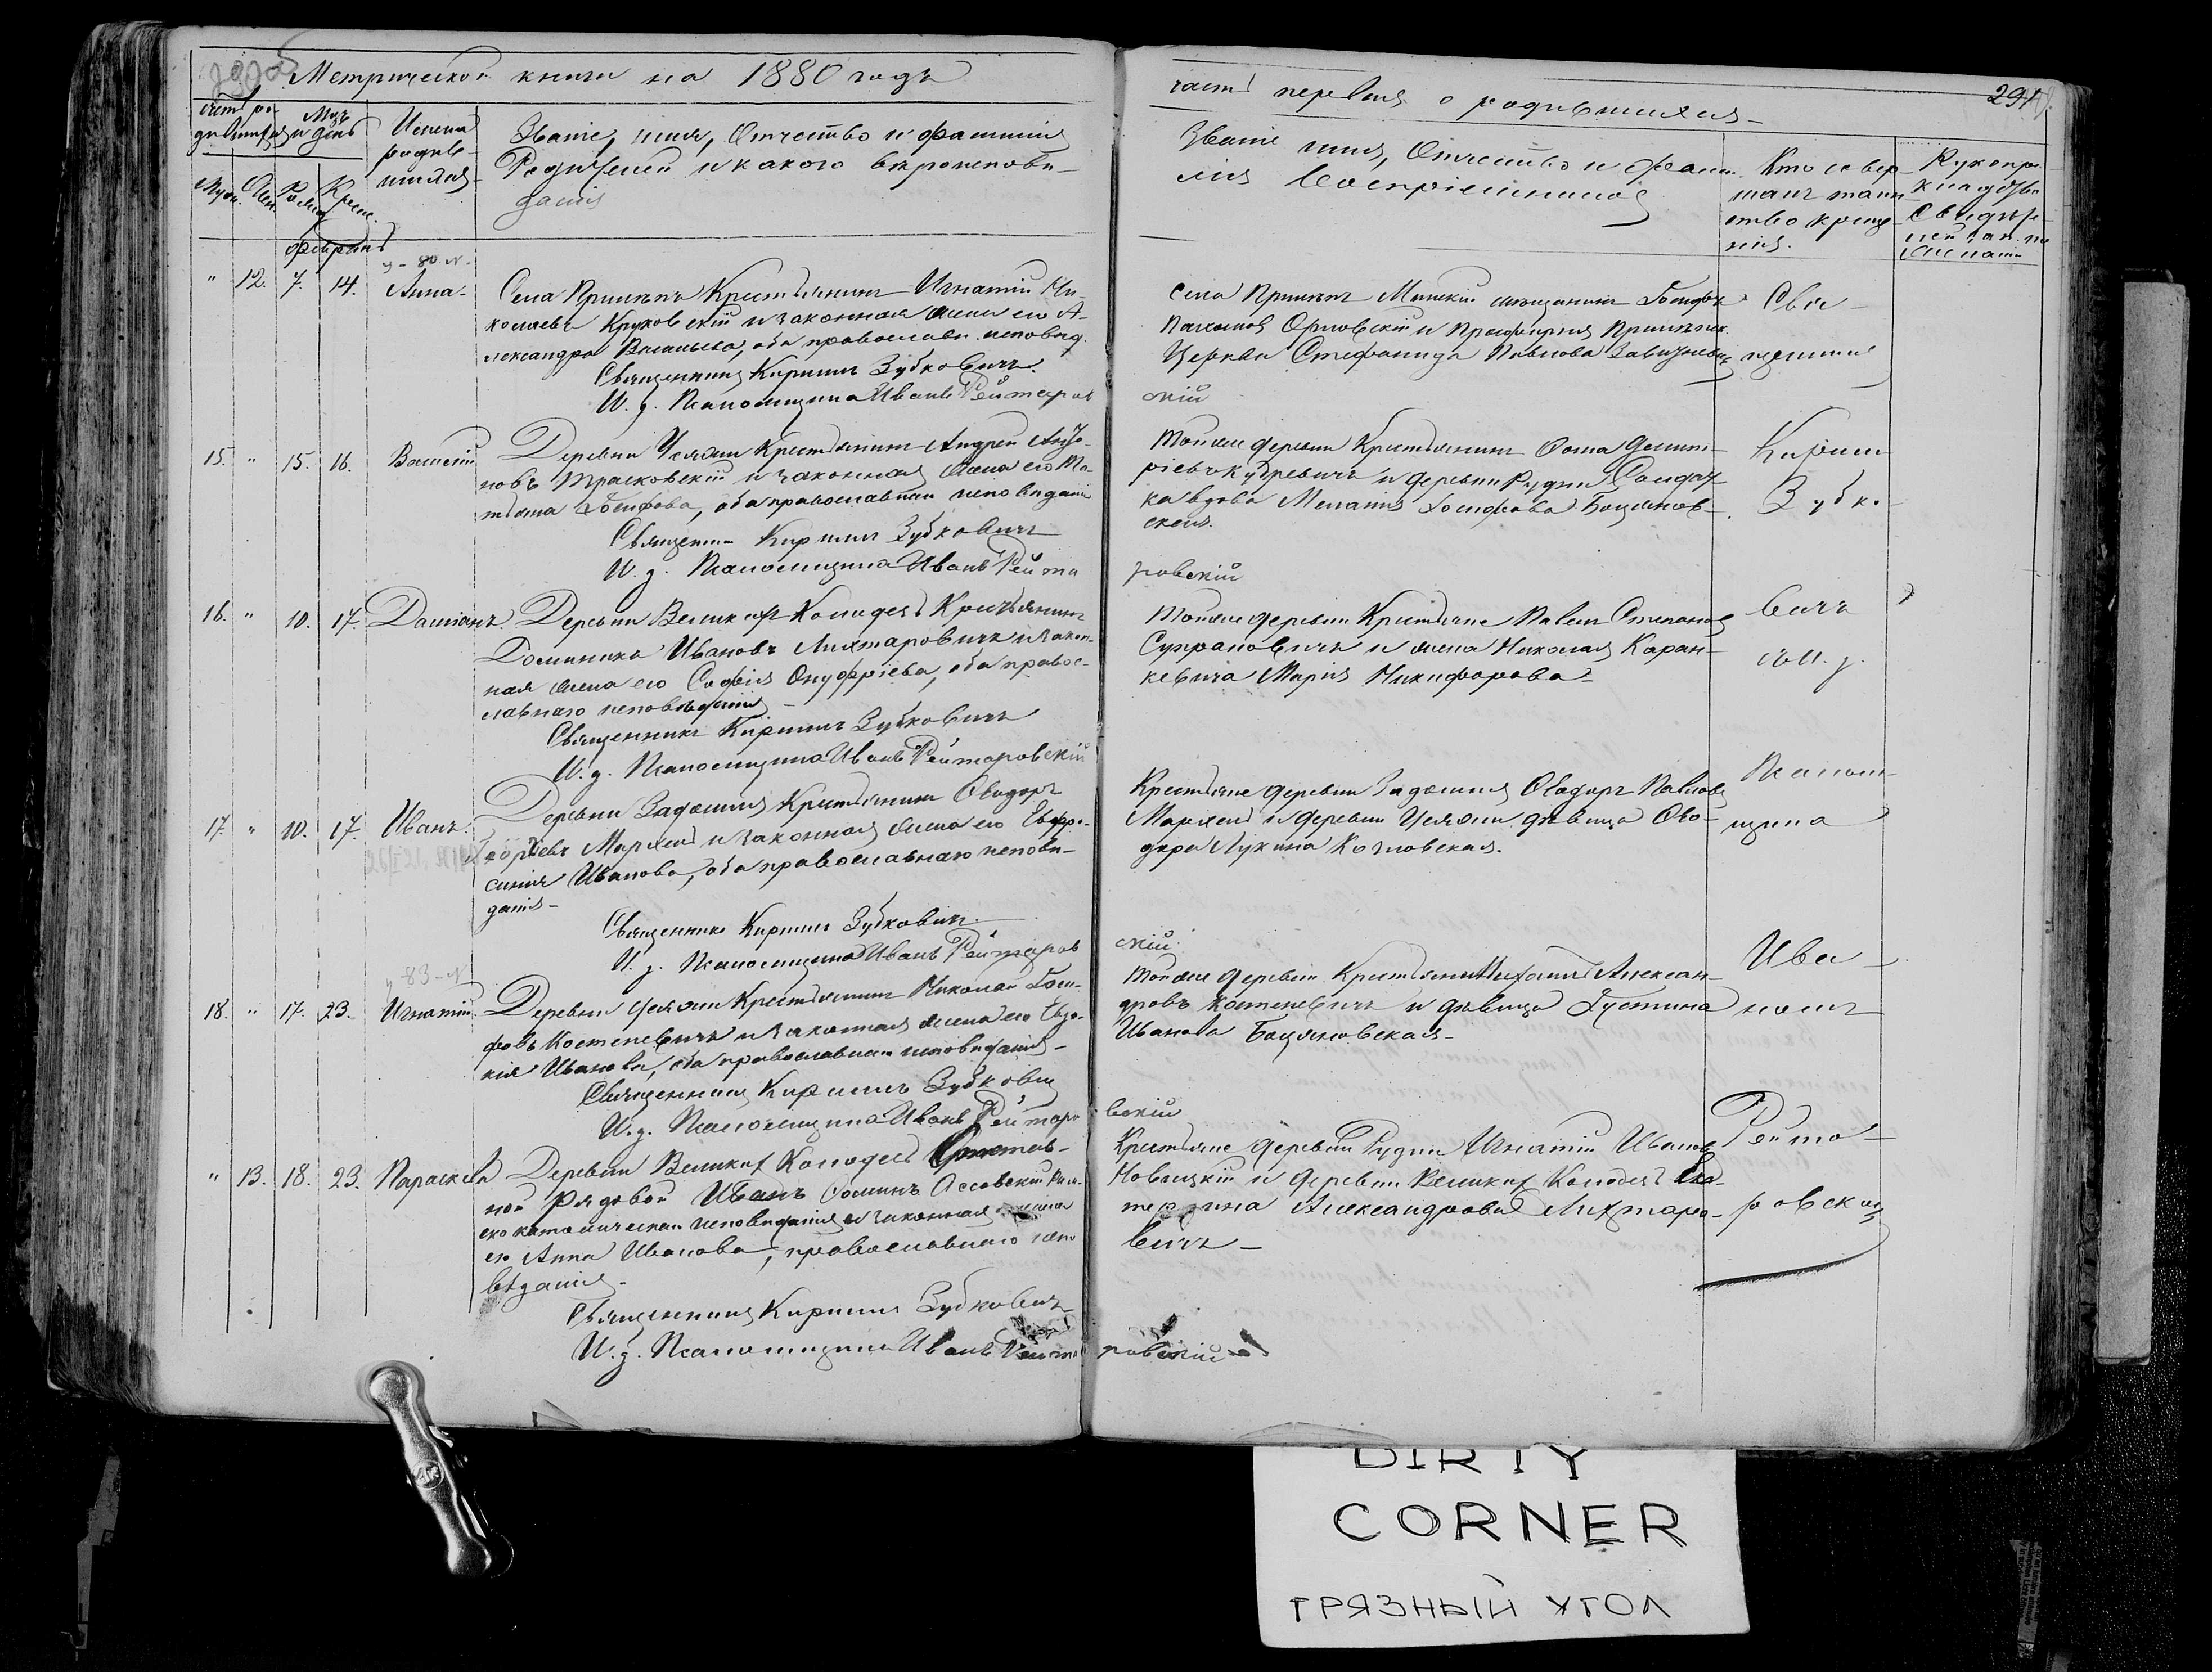 Метрической книги на 1880 годъ
часть первая о родившихся
291
Счетъ ро-
дившихся
Мцъ
и день
Имена
родив-
шихся
Званіе, имя, Отчество и фамилія
Родителей и какого вѣроисповѣ-
данія
Муж. Жен. Рожд. Крещ.
Февраль
Званіе имя, Отчество и фами-
лія Воспріемниковъ
Кто совер-
шалъ таин-
ство креще-
нія.
Рукопри-
кладство
Свидѣте-
лей
у - 80 -
" 12. 7. 14. Анна
Села Прилѣпъ Крестьянинъ Игнатій Ни-
колаевъ Круковскій и законная жена его А-
лександра Васильева, оба православн. исповѣд.
Священникъ Кириллъ Зубковичъ
И. д. Псаломщика Иванъ Рейтаров
скій
Села Прилѣпъ Минскій мѣщанинъ Іосифъ
Орловскій и
Церкви Стефанида Павлова
15. " 15. 16. Василій
Деревни Усяжи Крестьянинъ Андрей Анто-
новъ Трасковскій и законная жена его Та-
тіана Іосифова, оба православнаго исповѣданія
Священникъ Кириллъ Зубковичъ
И. д. Псаломщика Иванъ Рейта
ровскій
Тойже деревни Крестьянинъ Ѳома Димит-
ріевъ Кудревичъ и деревни Рудни Солдат-
ка вдова Меланія Іосифова Боцянов-
ская.
16. " 10. 17. Даміанъ
Деревни Великихъ Колодезь Крестьянинъ
Доминикъ Ивановъ Лихтаровичъ и закон-
ная жена его Софія Онуфріева, оба правос-
лавнаго исповѣданія
Священникъ Кириллъ Зубковичъ
И. д. Псаломщика Иванъ Рейтаровскій
Тойже деревни Крестьяне Павелъ Степановъ
Супрановичъ и жена Николая Каран-
кевича Марія Никифорова
17. " 10. 17. Иванъ
Деревни Задомля Крестьянинъ Ѳеодоръ
Георгіевъ Мархель и законная жена его Евфро-
синія Иванова, оба православнаго исповѣ-
данія
Священникъ Кириллъ Зубковичъ
И. д. Псаломщика Иванъ Рейтаров
скій
Крестьяне деревни Задомля Ѳеодоръ Павловъ
Мархель и деревни Усяжи дѣвица Ѳео-
дора Лукина Козловская.
83
18. " 17. 23. Игнатій
Деревни Усяжи Крестьянинъ Николай Іоси-
фовъ Костеневичъ и законная жена его Евдо-
кія Иванова, оба православнаго исповѣданія
Священникъ Кириллъ Зубковичъ
И. д. Псаломщика Иванъ Рейтаро
вскій
Тойже деревни Крестьянинъ Михаилъ Алексан-
дровъ Костеневичъ и дѣвица Іустина
Иванова Боцяновская
" 13. 18. 23. Параскева
Деревни Великихъ Колодезь Отстав-
ной Рядовой Иванъ Ѳоминъ Ассовскій Рим-
ско католическаго исповѣданія и законная жена
его Анна Иванова, православнаго испо
вѣданія
Священникъ Кириллъ Зубковичъ
И. д. Псаломщика Иванъ Рейта
ровскій
Крестьяне деревни Рудни Игнатій Ивановъ
Новицкій и деревни Великихъ Колодезь Ека-
терина Александрова Лихтаро-
вичъ
Свя-
щенникъ
Кириллъ
Зубко-
вичъ
съ И. д.
Псалом-
щика
Ива-
номъ
Рейта-
ровскимъ
DIRTY
CORNER
ГРЯЗНЫЙ УГОЛ